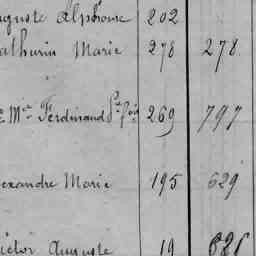 uguste Alphonse 202
athurin Marie 278 278
Mie Ferdinand 269 797
exandre Marie 195 629
ictor Auguste 19